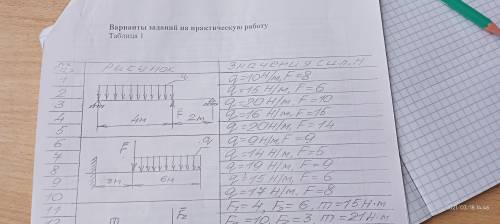 Варианты заданий на практическую работу
Таблица 1
Рисунок Значения сил, Н
1 q=10Н/м, F=8
2 q=15 Н/м, F=6
3 q=20Н/м F=10
4 q=16 Н/м, F=16
5 q=20Н/м, F=14
q
F
4м 2м
6 q=9Н/м F=9
7 q=14Н/м F=5
8 q=19 Н/м, F=9
9 q=15 Н/м, F=6
10 q=17 Н/м, F=8
F q
2м 6м
11 F1=4, F2=6, m=15Н·м
F2=10, F2=3, m=21Н·м
m F2